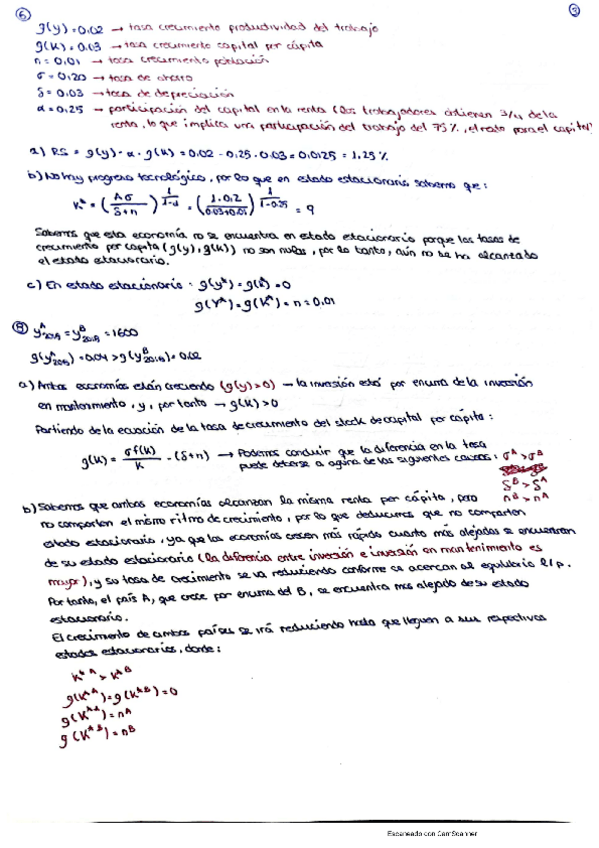 ⑥ ③
g(y)=0.02 → tasa crecimiento productividad del trabajo
g(k)=0.03 → tasa crecimiento capital por cápita
n=0.01 → tasa crecimiento población
σ=0.20 → tasa de ahorro
δ=0.03 → tasa de depreciación
α=0.25 → participación del capital en la renta (los trabajadores obtienen 3/4 de la
renta, lo que implica una participación del trabajo del 75%, el resto para el capital)
a) RS = g(y) - α · g(k) = 0.02 - 0.25 · 0.03 = 0.0125 = 1.25%
b) No hay progreso tecnológico, por lo que en estado estacionario sabemos que:
k* = (Aσ/(δ+n))^(1/(1-α)) = (1·0.2/(0.03+0.01))^(1/(1-0.25)) = 9
Sabemos que esta economía no se encuentra en estado estacionario porque las tasas de
crecimiento per capita (g(y), g(k)) no son nulas, por lo tanto, aún no se ha alcanzado
el estado estacionario.
c) En estado estacionario: g(y*) = g(k*) = 0
g(Y*) = g(K*) = n = 0,01
y^A = y^B = 1600
g(y^A) = 0.04 > g(y^B) = 0.02
a) Ambas economías están creciendo (g(y)>0) — la inversión está por encima de la inversión
en mantenimiento, y, por tanto → g(k)>0
Partiendo de la ecuación de la tasa de crecimiento del stock de capital por cápita:
g(k) = σf(k)/k - (δ+n) → Podemos concluir que la diferencia en la tasa
puede deberse a alguna de las siguientes causas: σ^A > σ^B
δ^B > δ^A
n^B > n^A
b) Sabemos que ambas economías alcanzan la misma renta per cápita, pero
no comparten el mismo ritmo de crecimiento, por lo que deducimos que no comparten
estado estacionario, ya que las economías crecen más rápido cuanto más alejadas se encuentran
de su estado estacionario (la diferencia entre inversión e inversión en mantenimiento es
mayor), y su tasa de crecimiento se va reduciendo conforme se acercan al equilibrio l/p.
Por tanto, el país A, que crece por encima del B, se encuentra más alejado de su estado
estacionario.
El crecimiento de ambos países se irá reduciendo hasta que lleguen a sus respectivos
estados estacionarios, donde:
k*^A > k*^B
g(k*^A) = g(k*^B) = 0
g(K*^A) = n^A
g(K*^B) = n^B
Escaneado con CamScanner